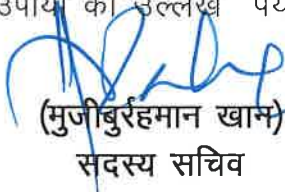 उपायों का उल्लेख
(मुजीबुर्रहमान खान)
सदस्य सचिव